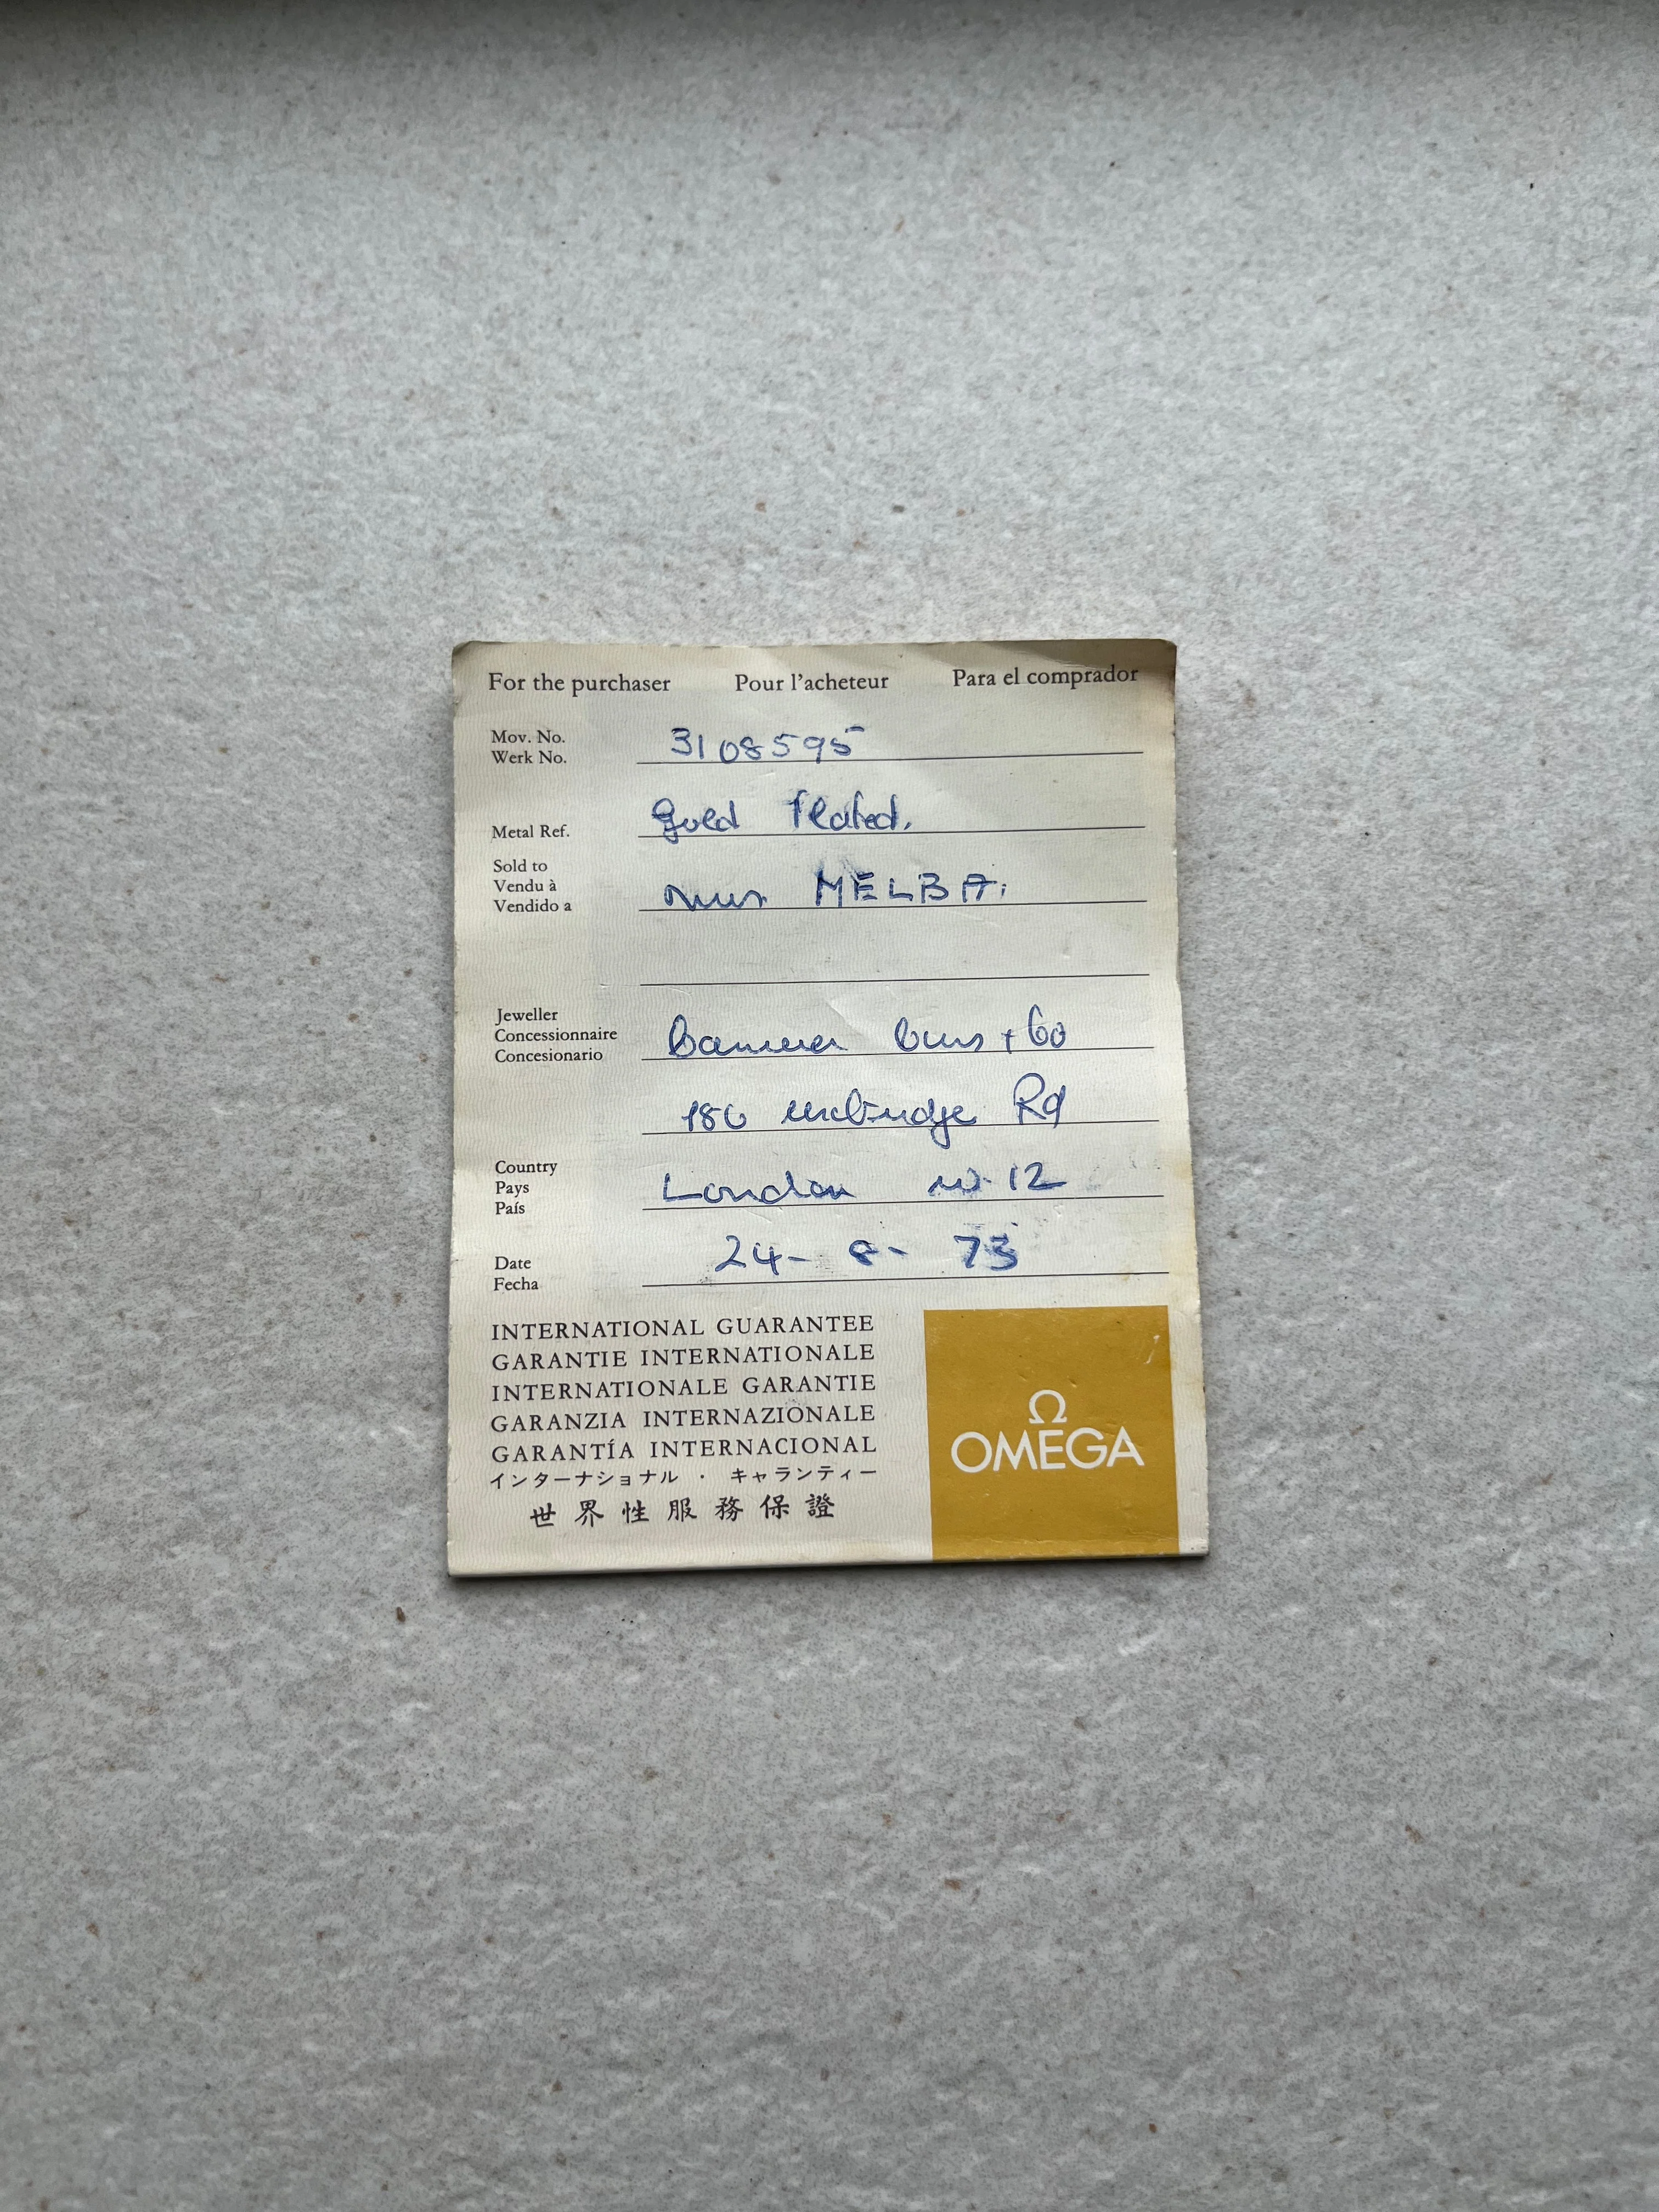 For the purchaser Pour l'acheteur Para el comprador
Mov. No. 3108595
Werk No.
Metal Ref. Gold Plated.
Sold to
Vendu à MELBA.
Vendido a
Jeweller
Concessionnaire + Co
Concesionario
186 uxbridge Rd
Country
Pays London w.12
País
Date 24- 8- 73
Fecha
INTERNATIONAL GUARANTEE
GARANTIE INTERNATIONALE
INTERNATIONALE GARANTIE
GARANZIA INTERNAZIONALE
GARANTÍA INTERNACIONAL
インターナショナル · キャランティー
世界性服務保證
Ω
OMEGA